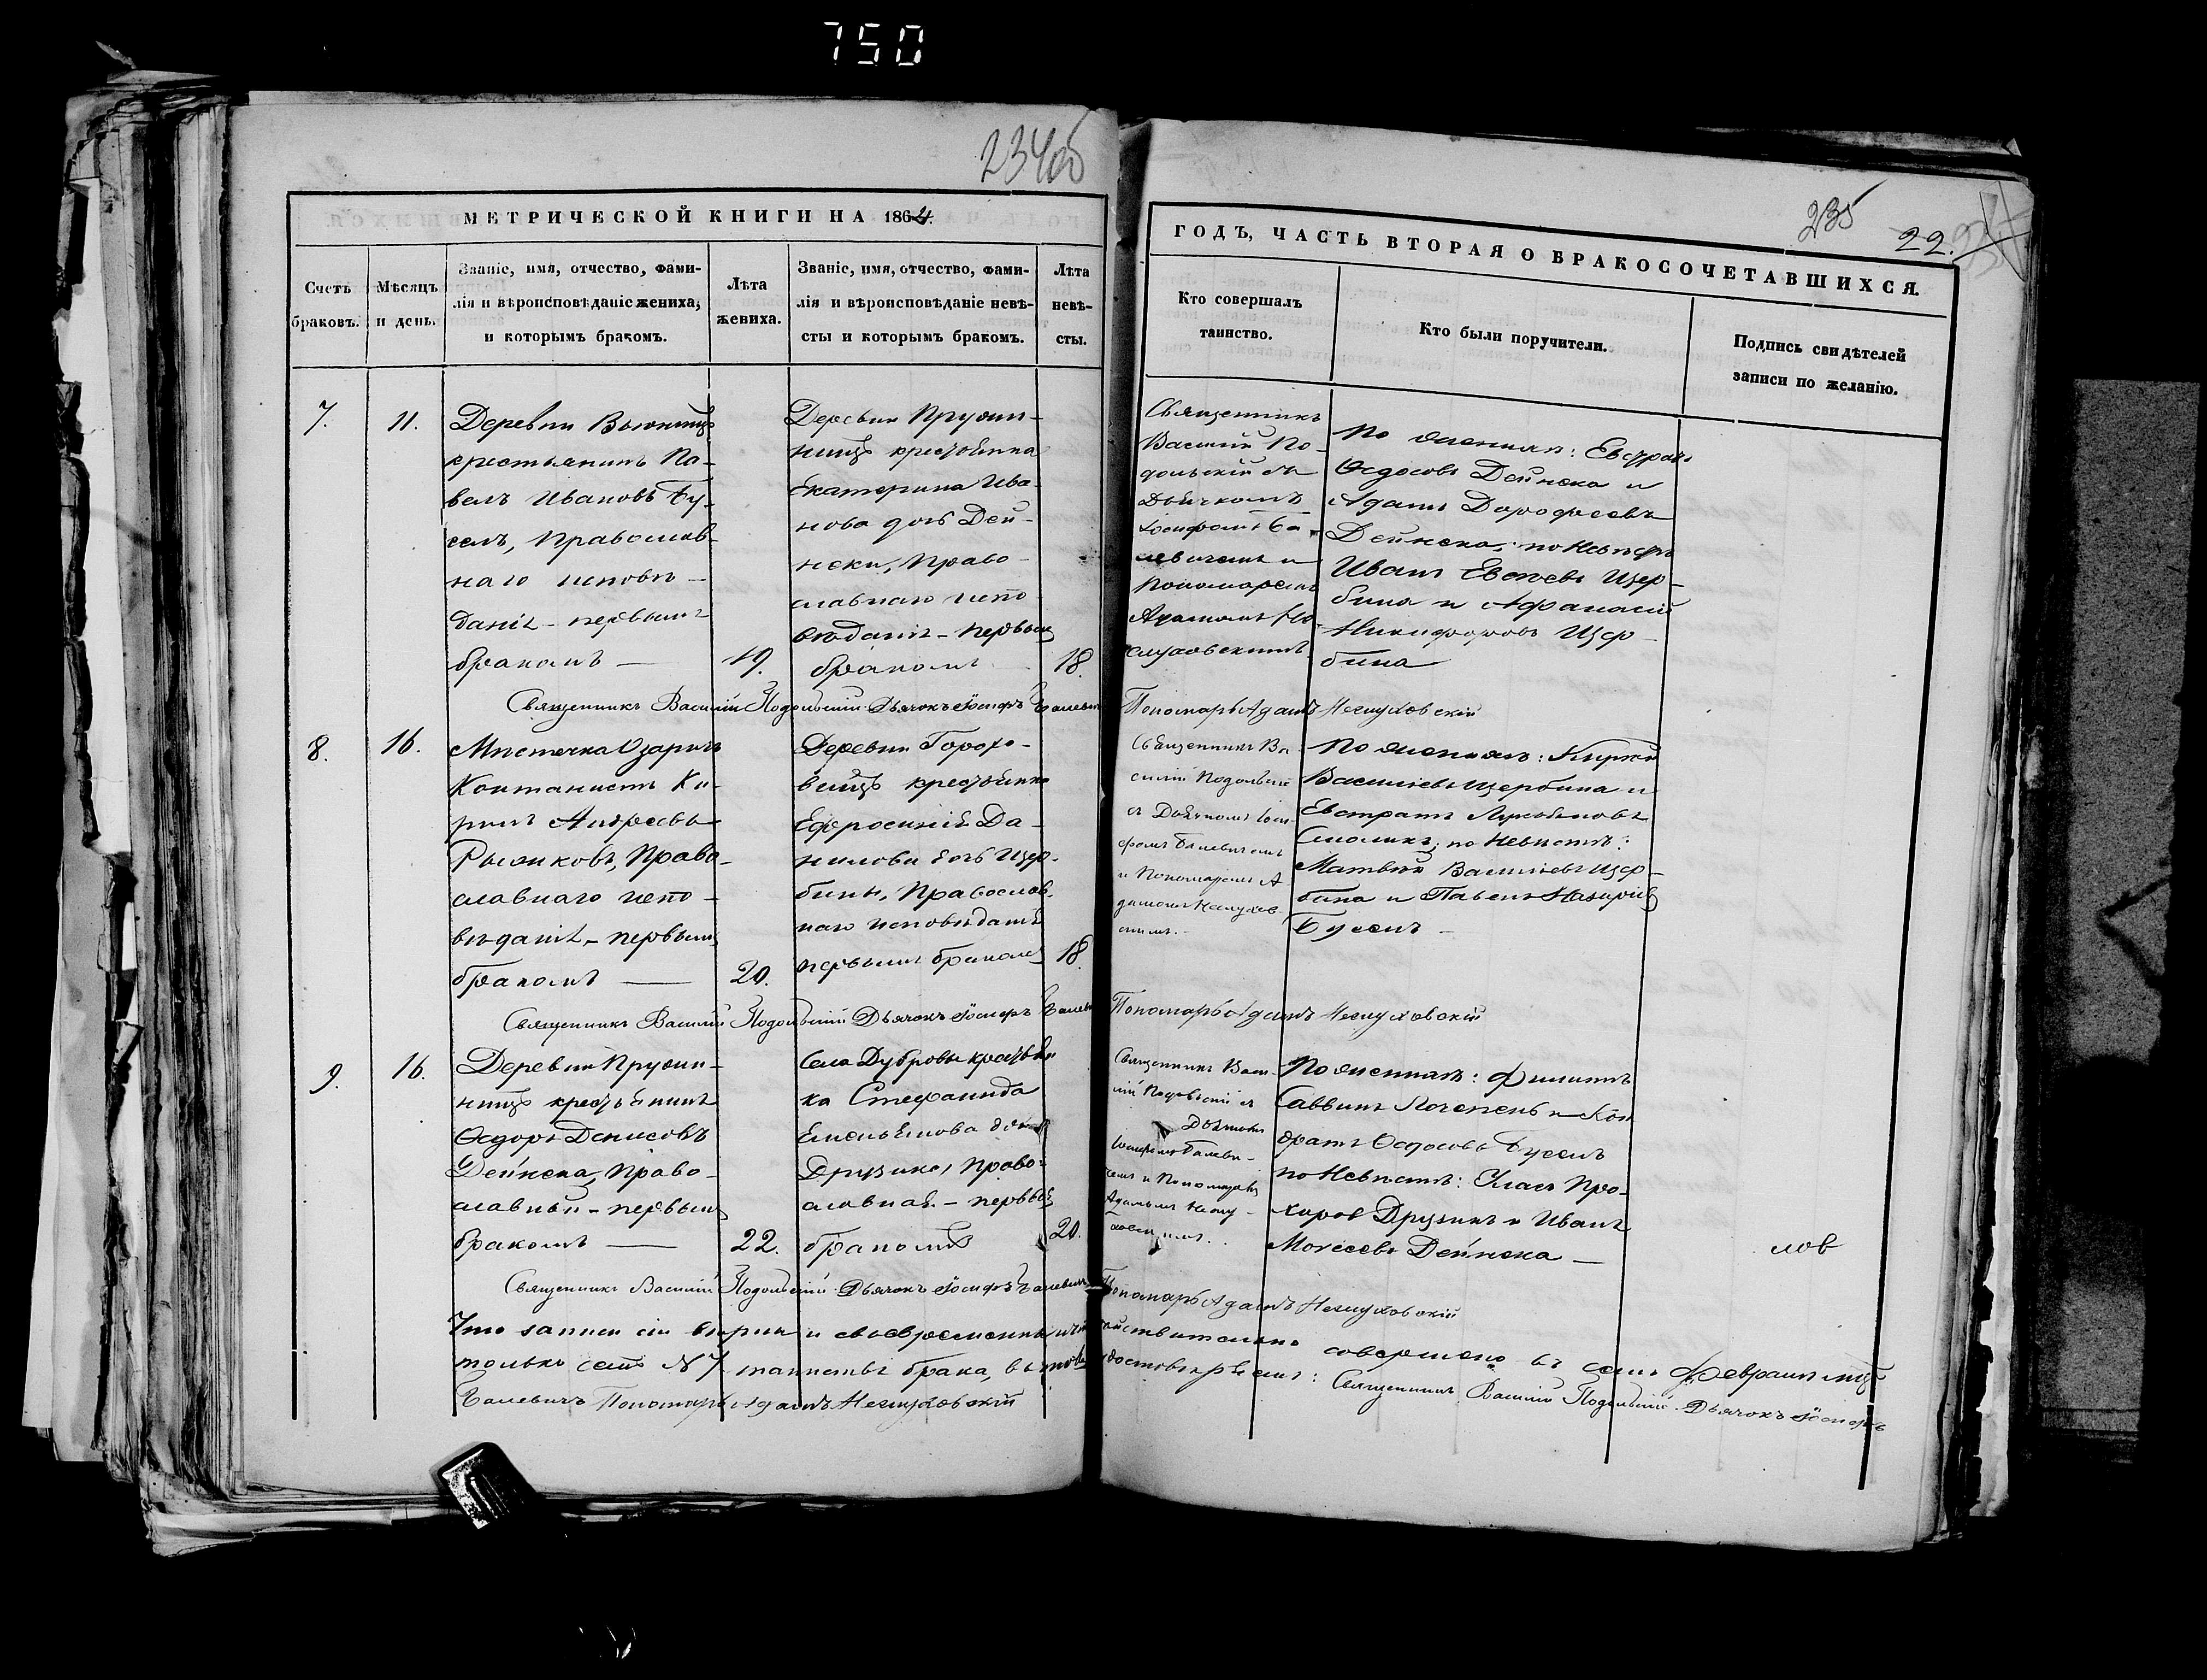 750
234об
МЕТРИЧЕСКОЙ КНИГИ НА 1864.
Счетъ браковъ.
Мѣсяцъ и день.
Званіе, имя, отчество, фами-
лія и вѣроисповѣданіе жениха,
и которымъ бракомъ.
Лѣта
жениха.
Званіе, имя, отчество, фами-
лія и вѣроисповѣданіе невѣ-
сты и которымъ бракомъ.
Лѣта
невѣ-
сты.
235
22.
ГОДЪ, ЧАСТЬ ВТОРАЯ О БРАКОСОЧЕТАВШИХСЯ.
Кто совершалъ
таинство.
Кто были поручители.
Подпись свидѣтелей
записи по желанію.
7.
11.
Деревни
крестьянинъ Па-
велъ Ивановъ Бу-
селъ, Православ-
наго исповѣ-
данія - первымъ
бракомъ
19.
Деревни Прудин-
ницъ крестьянка
Екатерина Ива-
нова дочь Дей-
неки, Право-
славнаго испо-
вѣданія - первымъ
бракомъ
18.
Священникъ
Василій По-
дольскій съ
Дьячкомъ
Іосифомъ Ба-
левичемъ и
Пономаремъ
Адамомъ
По женихѣ: Евстратъ
Ѳедосовъ Дейнека и
Адамъ Дорофеевъ
Дейнека; по невѣстѣ
Иванъ Щер-
бина и Афанасій
Никифоровъ Щер-
бина
Священникъ Василій Подольскій Дьячокъ Іосифъ Балевичъ
Пономарь Адамъ
8.
16.
Мѣстечка Озаричъ
Кантонистъ Ки-
рилъ Андреевъ
Рыжиковъ, Право-
славнаго испо-
вѣданія - первымъ
бракомъ
20.
Деревни Горохо-
вищъ крестьянка
Ефросинія Да-
нилова дочь Щер-
бины, Православ-
наго исповѣданія
первымъ бракомъ
18.
Священникъ Ва-
силій Подольскій
съ Дьячкомъ Іоси-
фомъ Балевичемъ
и Пономаремъ А-
дамомъ
По женихѣ:
Васильевъ Щербина и
Евстратъ
по невѣстѣ:
Матвѣй Васильевъ Щер-
бина и Павелъ
Буселъ
Священникъ Василій Подольскій Дьячокъ Іосифъ Балевичъ
Пономарь Адамъ
9.
16.
Деревни Прудин-
ницъ крестьянинъ
Ѳедоръ Денисовъ
Дейнека, Право-
славный - первымъ
бракомъ
22.
Села Дубровы крестьян-
ка Стефанида
Емельянова дочь
Друзика, Право-
славная - первымъ
бракомъ
20.
Священникъ Васи-
лій Подольскій съ
Дьячкомъ
Іосифомъ Балеви-
чемъ и Пономаремъ
Адамомъ
По женихѣ: Филиппъ
Саввинъ и Кон
дратъ Ѳедосовъ Буселъ
по невѣстѣ: Власъ Про-
хоровъ Друзикъ и Иванъ
Моисеевъ Дейнека
лов
Священникъ Василій Подольскій Дьячокъ Іосифъ Балевичъ
Пономарь Адамъ
Что записи сіи вѣрны и своевременны и что дѣйствительно совершено въ семъ Февралѣ мцѣ
только семь № 7 таинствъ брака, въ томъ удостовѣряемъ: Священникъ Василій Подольскій Дьячокъ Іосифъ
Балевичъ Пономарь Адамъ